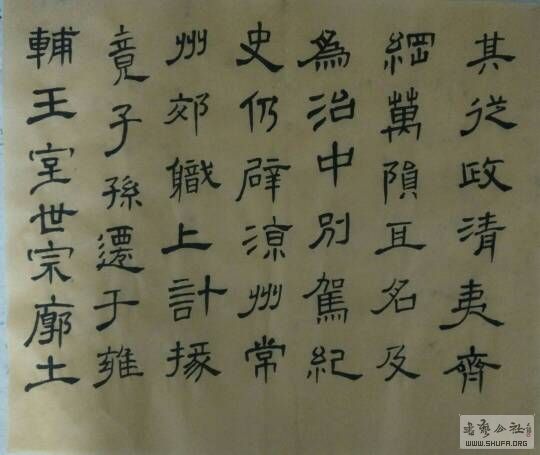 其從政清夷齊
綱萬隕名及
為治中別駕紀
史仍辟涼州常
州郊職上計掾
竟子孫遷于雍
輔王室世宗廓土
书艺公社
WWW.SHUFA.ORG